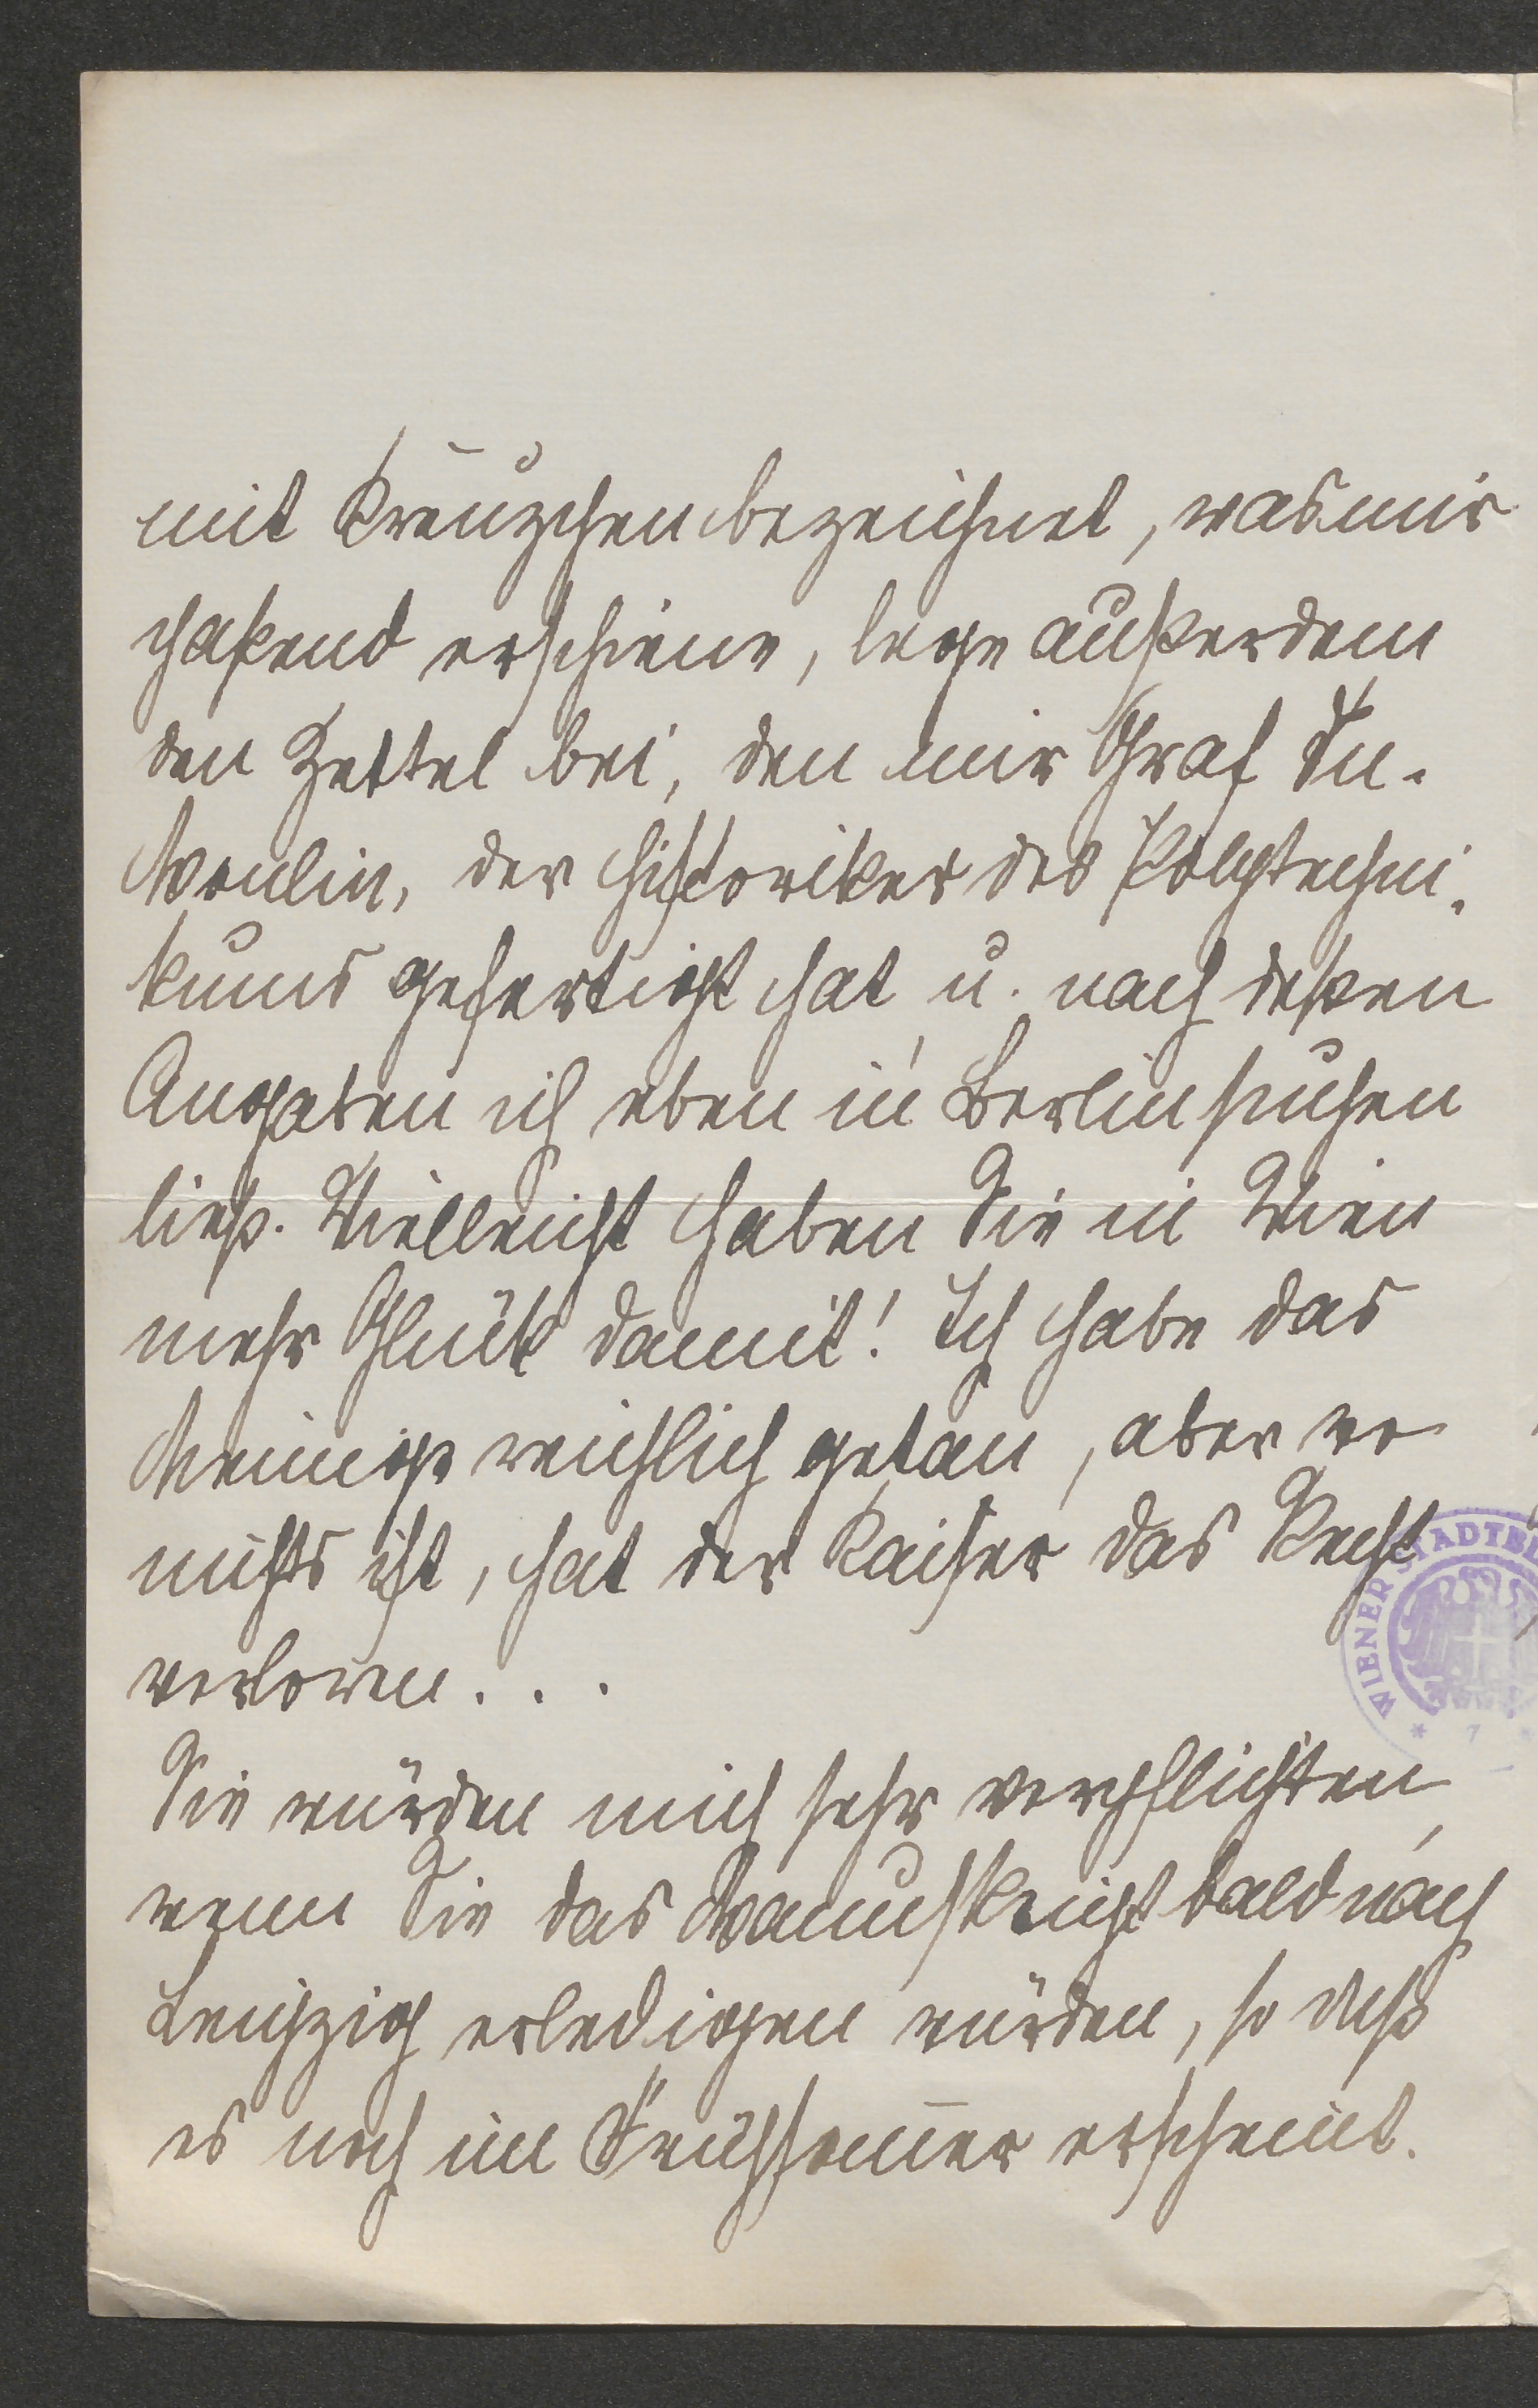 mit Kreuzchen bezeichnet, was mir
paßend erschiene, lege außerdem
den Zettel bei, den mir Graf Du-
Moulin, der Historiker des Polytechni-
kums gefertigt hat u. nach deßen
Angaben ich eben in Berlin suchen
ließ. Vielleicht haben Sie in Wien
mehr Glük damit! Ich habe das
Meinige reichlich getan, aber wo
nichts ist, hat der Kaiser das Recht
verloren...
Sie würden mich sehr verpflichten,
wenn Sie das Manuskript bald nach
Leipzig erledigen würden, so daß
es noch im Frühsom̅er erscheint.
WIENER STADTBI
* 7